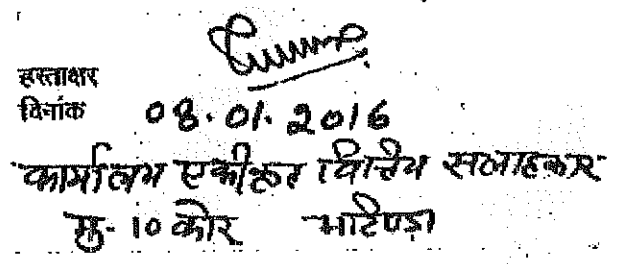 हस्ताक्षर
दिनांक 08.01.2016
कार्यालय एकीकृत वित्तीय सलाहकार
मु. 10 कोर भटिण्डा